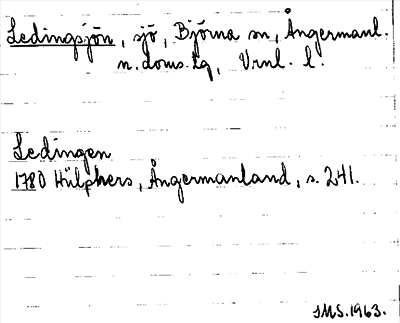 Ledingsjön, sjö, Björna sn, Ångermanl.
n. doms. lg, Vrnl. l.
Ledingen
1780 Hülphers, Ångermanland, s. 241.
IMS. 1963.